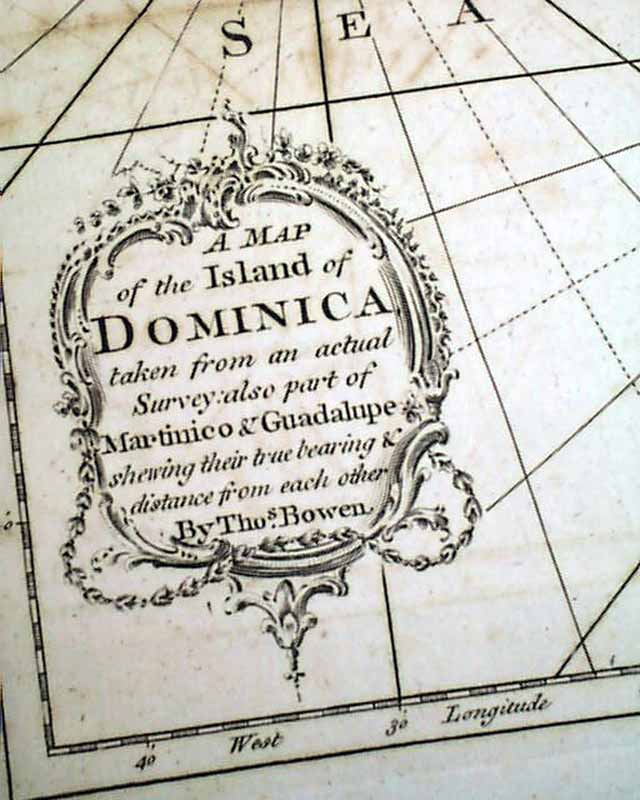 SEA
A MAP
of the Island of
DOMINICA
taken from an actual
Survey: also part of
Martinico & Guadalupe
shewing their true bearing &
distance from each other
By Thos. Bowen.
40 West 30 Longitude